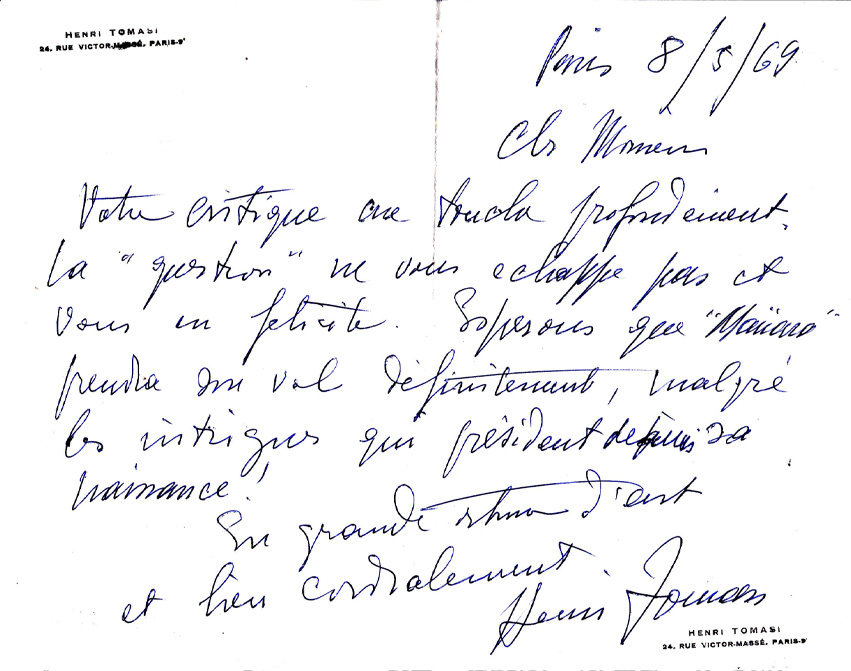 HENRI TOMASI
24, RUE VICTOR-MASSÉ, PARIS-9ᵉ
Paris 8/5/69
Cher Monsieur
Votre critique me toucha profondément.
La "question" ne vous echappe pas et
vous en felicite. Esperons que "Mañara"
prendra son vol définitement, malgré
les intrigues qui président depuis sa
naissance!
En grande estime d'art
et bien cordialement.
Henri Tomasi
HENRI TOMASI
24, RUE VICTOR-MASSÉ, PARIS-9ᵉ